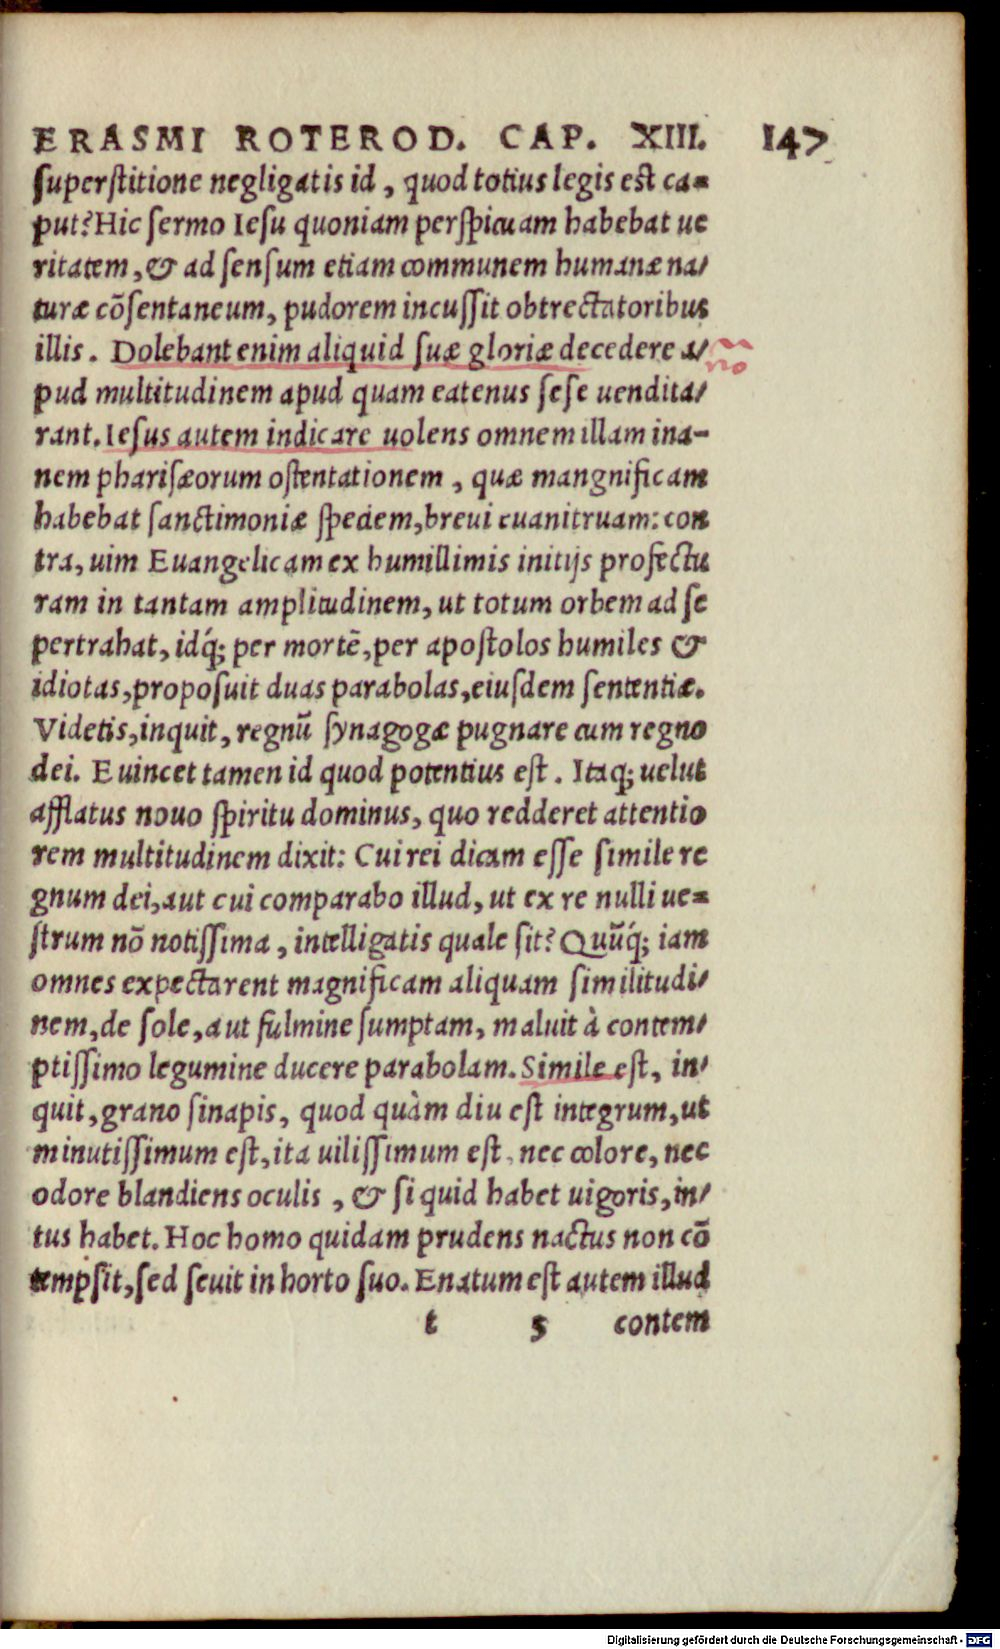 ERASMI ROTEROD. CAP. XIII. 147
superstitione negligatis id, quod totius legis est ca=
put? Hic sermo Iesu quoniam perspicuam habebat ue
ritatem, & ad sensum etiam communem humanæ na/
turæ cõsentaneum, pudorem incussit obtrectatoribus
illis. Dolebant enim aliquid suæ gloriæ decedere a/
pud multitudinem apud quam eatenus sese uendita/
rant. Iesus autem indicare uolens omnem illam ina-
nem pharisæorum ostentationem, quæ mangnificam
habebat sanctimoniæ speciem, breui euanituram: con
tra, uim Euangelicam ex humillimis initijs profectu
ram in tantam amplitudinem, ut totum orbem ad se
pertrahat, idq́; per mortẽ, per apostolos humiles &
idiotas, proposuit duas parabolas, eiusdem sententiæ.
Videtis, inquit, regnũ synagogæ pugnare cum regno
dei. Euincet tamen id quod potentius est. Itaq; uelut
afflatus nouo spiritu dominus, quo redderet attentio
rem multitudinem dixit: Cui rei dicam esse simile re
gnum dei, aut cui comparabo illud, ut ex re nulli ue=
strum nõ notissima, intelligatis quale sit? Quũq́; iam
omnes expectarent magnificam aliquam similitudi/
nem, de sole, aut fulmine sumptam, maluit à contem/
ptissimo legumine ducere parabolam. Simile est, in/
quit, grano sinapis, quod quàm diu est integrum, ut
minutissimum est, ita uilissimum est, nec colore, nec
odore blandiens oculis, & si quid habet uigoris, in/
tus habet. Hoc homo quidam prudens nactus non cõ
tempsit, sed seuit in horto suo. Enatum est autem illud
t 5 contem
Digitalisierung gefördert durch die Deutsche Forschungsgemeinschaft - DFG